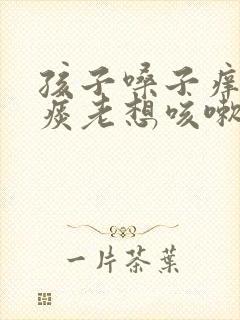 孩子嗓子痒
痰老想咳嗽
一片茶葉